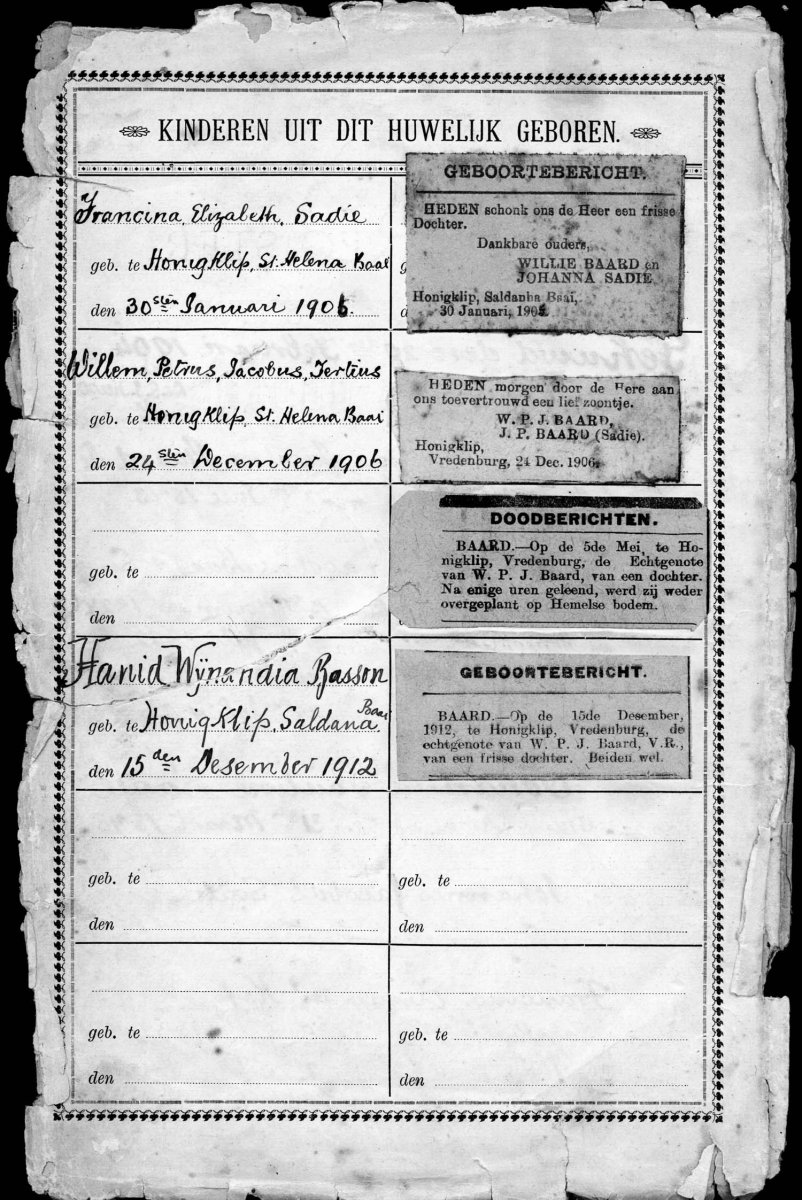 KINDEREN UIT DIT HUWELIJK GEBOREN.
Francina, Elizabeth, Sadie
geb. te Honigklip, St. Helena Baai
den 30sten Januari 1906.
GEBOORTEBERICHT.
HEDEN schonk ons de Heer een frisse
Dochter.
Dankbare ouders,
WILLIE BAARD en
JOHANNA SADIE
Honigklip, Saldanha Baai,
30 Januari,
Willem, Petrus, Jacobus, Tertius
geb. te Honigklip, St. Helena Baai
den 24sten December 1906
HEDEN morgen door de Here aan
ons toevertrouwd een lief zoontje.
W. P. J. BAARD,
J. P. BAARD (Sadie).
Honigklip,
Vredenburg, 24 Dec. 1906.
geb. te
den
DOODBERICHTEN.
BAARD.—Op de 5de Mei, te Ho-
nigklip, Vredenburg, de Echtgenote
van W. P. J. Baard, van een dochter.
Na enige uren geleend, werd zij weder
overgeplant op Hemelse bodem.
Hanid Wÿnandia Basson
geb. te Honigklip, Saldana Baai
den 15den Desember 1912
GEBOORTEBERICHT.
BAARD.—Op de 15de Desember,
1912, te Honigklip, Vredenburg, de
echtgenote van W. P. J. Baard, V.R.,
van een frisse dochter. Beiden wel.
geb. te
den
geb. te
den
geb. te
den
geb. te
den